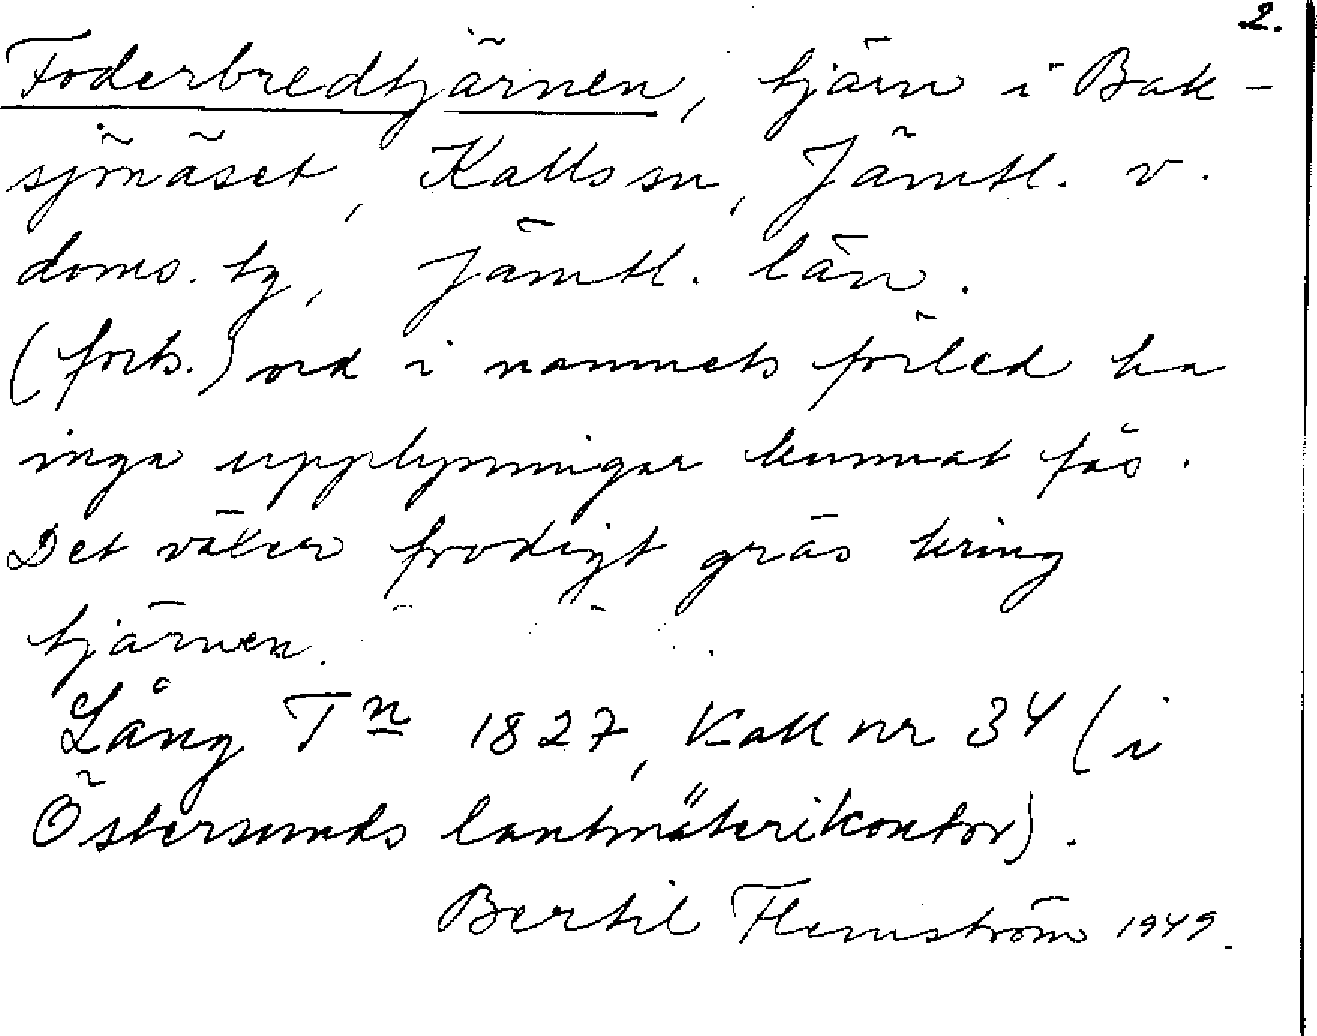 2.
Foderbredtjärnen, tjärn i Bak-
sjönäset, Kalls sn, Jämtl. v.
doms. tg, Jämtl. län.
(forts.) ord i namnets förled ha
inga upplysningar kunnat fås.
Det växer frodigt gräs kring
tjärnen.
Lång Tn 1827, Kall nr 34 (i
Östersunds lantmäterikontor).
Bertil Flemström 1949.